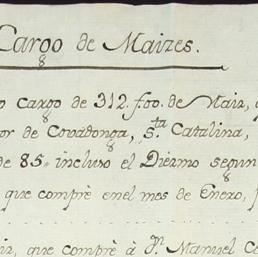 Cargo de Maizes.
o cargo de 312. foo. de Maiz,
or de Covadonga, S.ta Catalina,
de 85. incluso el Diezmo segun
que compré enel mes de Enero,
que compré à Dn. Manuel